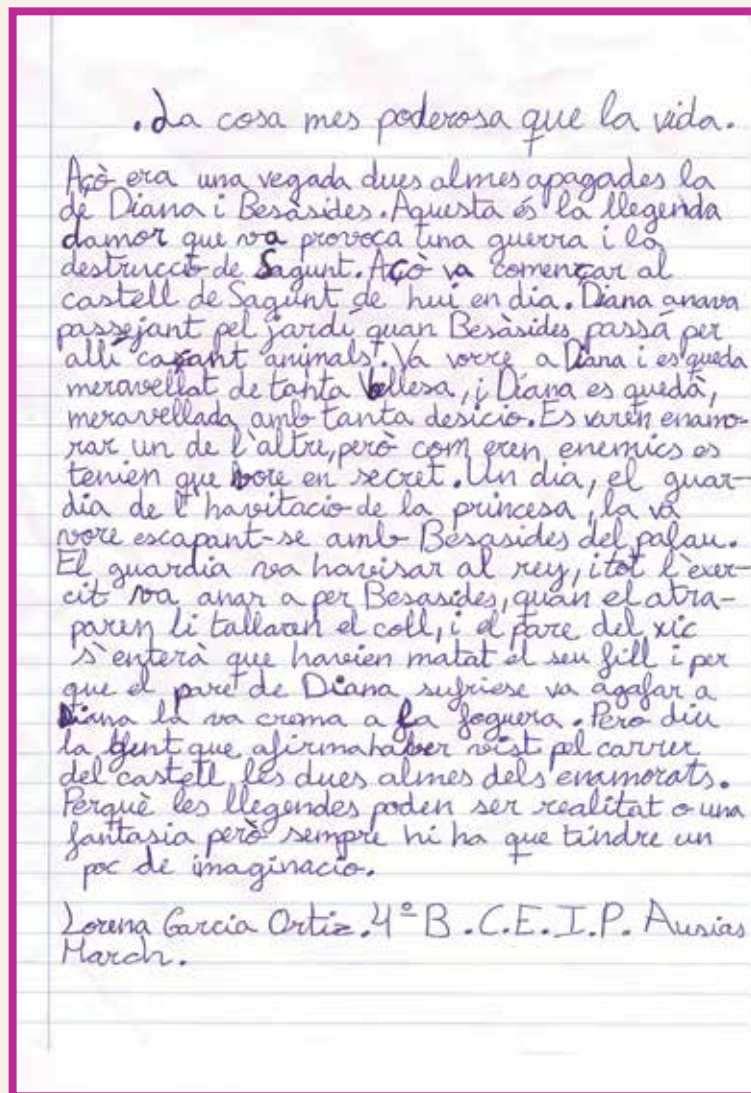 . La cosa mes poderosa que la vida.
Açò era una vegada dues almes apagades la
de Diana i Besàsides. Aquesta és la llegenda
damor que va provoca una guerra i la
destrucció de Sagunt. Açò va començar al
castell de Sagunt de hui en dia. Diana anava
passejant pel jardí quan Besàsides passá per
allí caçant animals. Va vorre a Diana i es queda
meravellat de tanta bellesa, i Diana es quedà,
meravellada amb tanta desicio. Es varen enamo-
rar un de l'altre, però com eren enemics es
tenien que vore en secret. Un dia, el guar-
dia de l'havitacio de la princesa, la va
vore escapant-se amb Besasides del palau.
El guardia va havisar al rey, i tot l'exer-
cit va anar a per Besasides, quan el atra-
paren li tallaren el coll, i el pare del xic
s'enterà que havien matat el seu fill i per
que el pare de Diana sufriese va agafar a
Diana la va crema a la foguera. Pero diu
la gent que afirma haber vist pel carrer
del castell les dues almes dels enamorats.
Perquè les llegendes poden ser realitat o una
fantasia però sempre hi ha que tindre un
poc de imaginacio.
Lorena Garcia Ortiz. 4º B. C.E.I.P. Ausias
March.